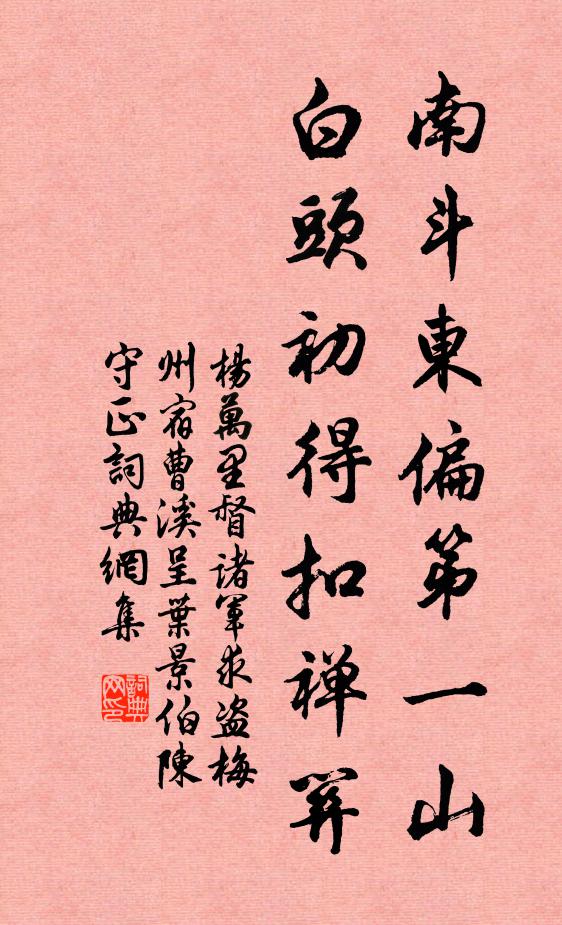 南斗東偏第一山
白頭初得扣禪關
楊萬里督諸軍求盜梅
州宿曹溪呈葉景伯陳
守正詞典網集
詞典
网印